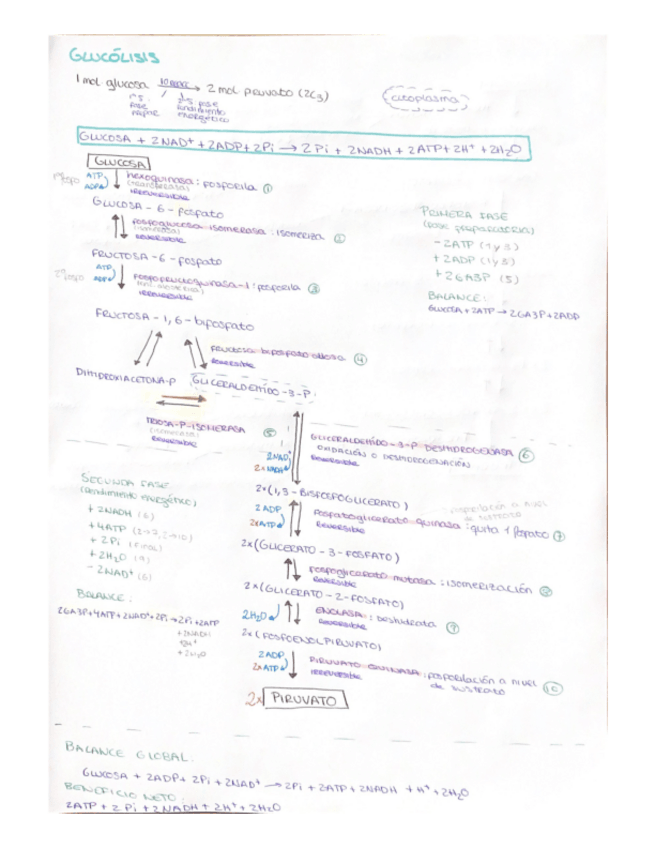 GLUCÓLISIS
1 mol glucosa 10 reacc → 2 mol piruvato (2C3)
citoplasma
1ª: fase
2ª fase rendimiento energético
GLUCOSA + 2NAD+ + 2ADP + 2Pi → 2Pi + 2NADH + 2ATP + 2H+ + 2H2O
GLUCOSA
ATP
ADP
hexoquinasa: fosforila ①
(transferasa)
irreversible
GLUCOSA - 6 - fosfato
fosfoglucosa isomerasa: isomeriza ②
(isomerasa)
reversible
FRUCTOSA - 6 - fosfato
ATP
ADP
fosfofructoquinasa-1: fosforila ③
irreversible
FRUCTOSA - 1,6 - bifosfato
PRIMERA FASE
(fase preparatoria)
- 2ATP (1 y 3)
+ 2ADP (1 y 3)
+ 2GA3P (5)
BALANCE:
GLUCOSA + 2ATP → 2GA3P + 2ADP
fructosa bifosfato aldolasa ④
reversible
DIHIDROXIACETONA-P GLICERALDEHÍDO - 3 - P
TRIOSA-P-ISOMERASA ⑤
(isomerasa)
reversible
GLICERALDEHÍDO - 3 - P DESHIDROGENASA ⑥
OXIDACIÓN O DESHIDROGENACIÓN
reversible
2NAD+
2xNADH
2x(1,3 - BISFOSFOGLICERATO)
fosforilación a nivel de sustrato
2 ADP
2xATP
fosfoglicerato quinasa: quita 1 fosfato ⑦
reversible
2x(GLICERATO - 3 - FOSFATO)
fosfoglicerato mutasa: isomerización ⑧
reversible
2x(GLICERATO - 2 - FOSFATO)
2H2O
ENOLASA: deshidrata ⑨
reversible
2x(FOSFOENOLPIRUVATO)
2ADP
2xATP
PIRUVATO QUINASA: fosforilación a nivel de sustrato ⑩
irreversible
2x PIRUVATO
SEGUNDA FASE
(Rendimiento energético)
+ 2NADH (6)
+ 4ATP (2→7, 2→10)
+ 2Pi (final)
+ 2H2O (9)
- 2NAD+ (6)
BALANCE:
2GA3P + 4ATP + 2NAD+ + 2Pi → 2Pi + 2ATP
+ 2NADH
+ 2H+
+ 2H2O
BALANCE GLOBAL:
GLUCOSA + 2ADP + 2Pi + 2NAD+ → 2Pi + 2ATP + 2NADH + H+ + 2H2O
BENEFICIO NETO:
2ATP + 2Pi + 2NADH + 2H+ + 2H2O